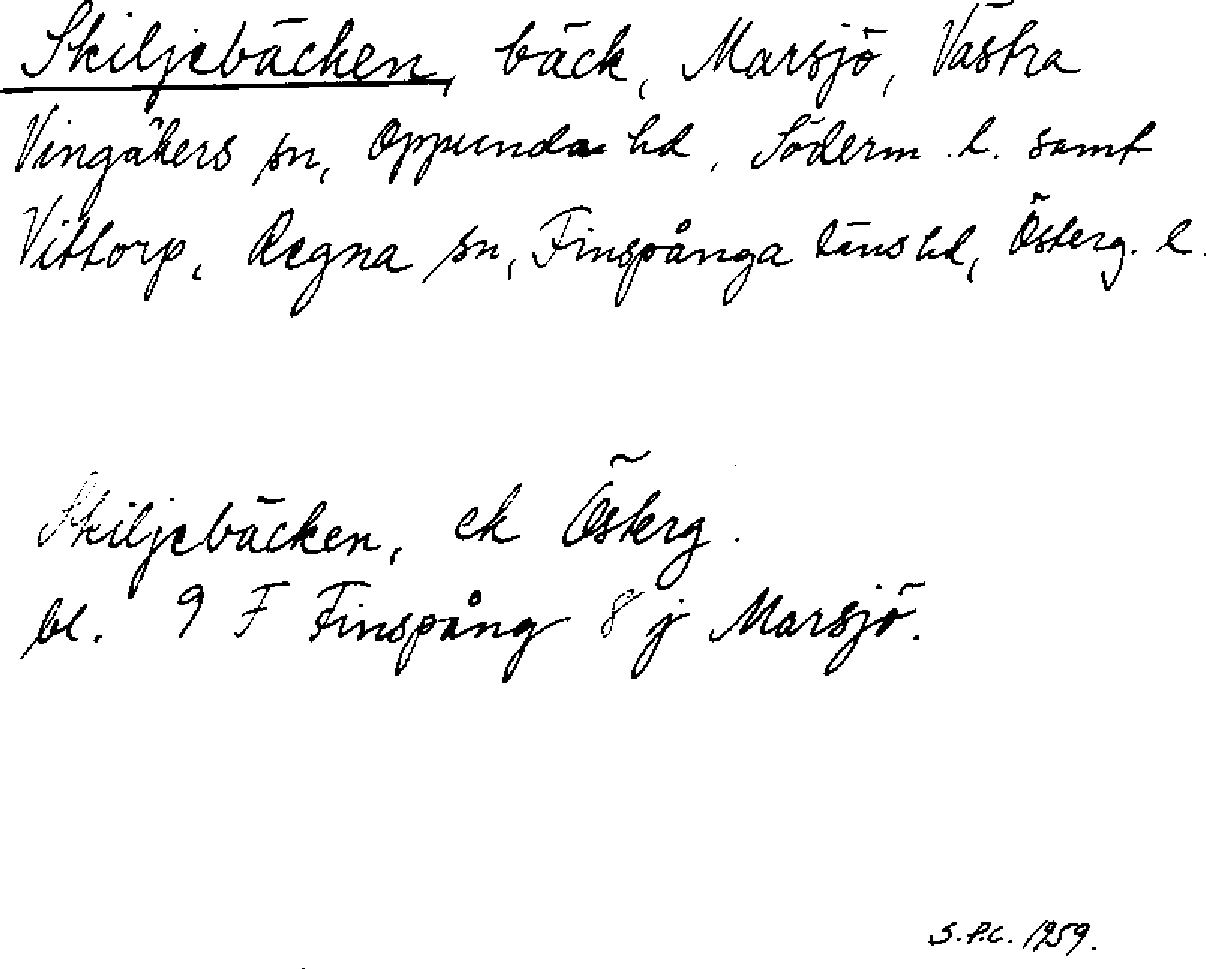 Skiljebäcken, bäck, Marsjö, Västra
Vingåkers sn, Oppunda hd, Söderm. l. samt
Vittorp, Regna sn, Finspånga läns hd, Österg. l.
Skiljebäcken, ek Österg.
bl. 9 F Finspång 8 j Marsjö.
S.P.C. 1959.